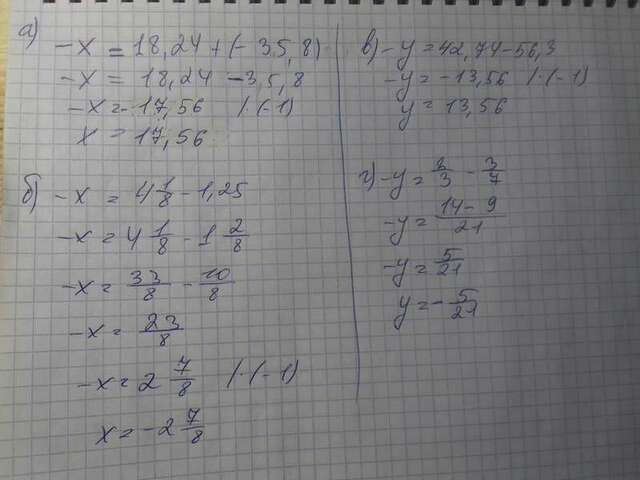 а)
-x = 18,24 + (-35,8)
-x = 18,24 - 35,8
-x = -17,56 | · (-1)
x = 17,56
б) -x = 4 1/8 - 1,25
-x = 4 1/8 - 1 2/8
-x = 33/8 - 10/8
-x = 23/8
-x = 2 7/8 | · (-1)
x = -2 7/8
в) -y = 42,74 - 56,3
-y = -13,56 | · (-1)
y = 13,56
г) -y = 2/3 - 3/7
-y = 14 - 9/21
-y = 5/21
y = -5/21